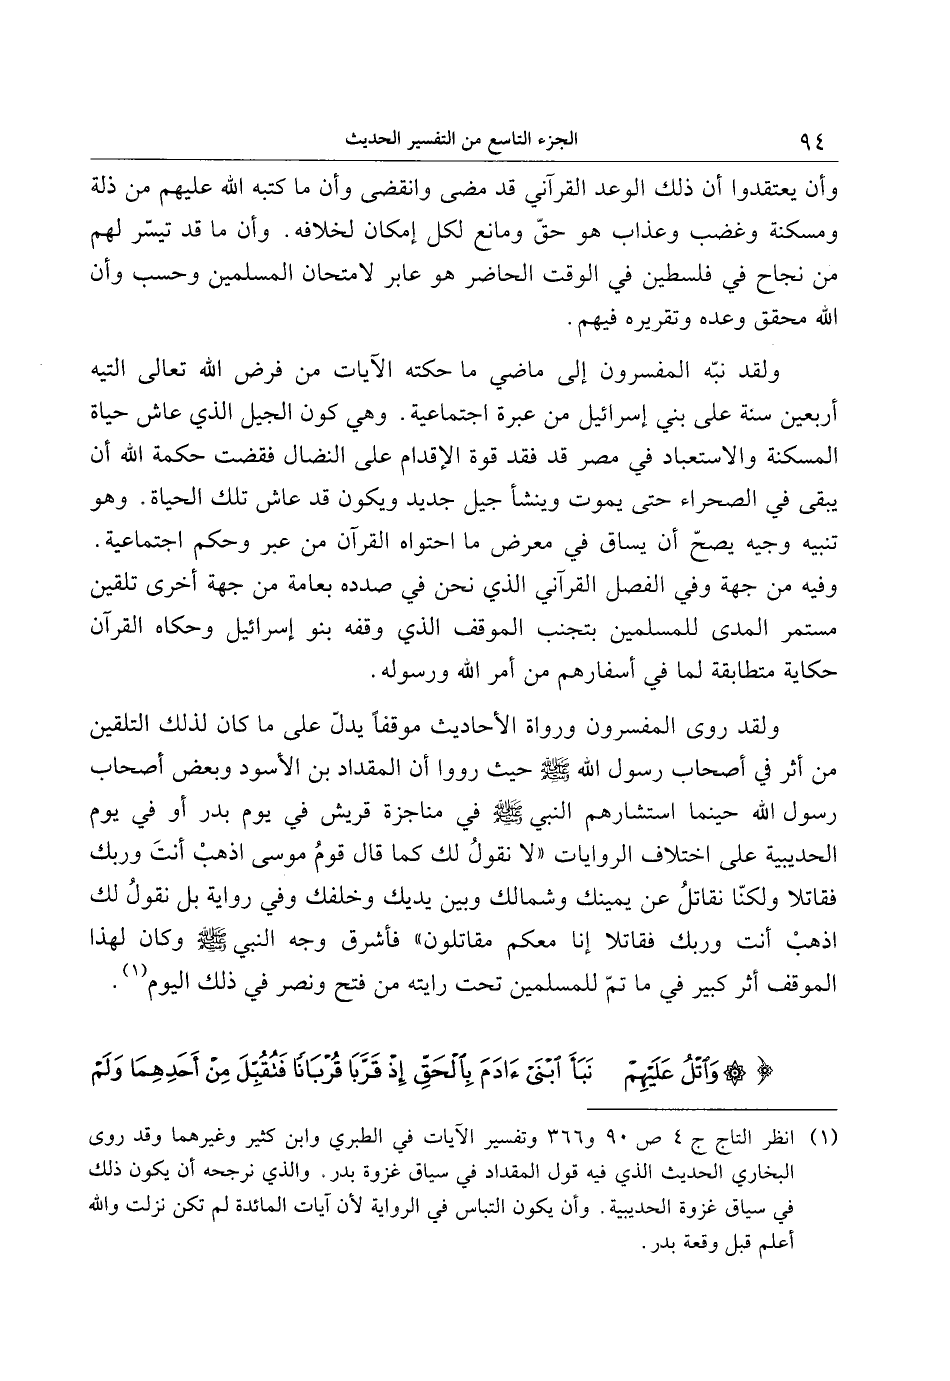 ٩٤ الجزء التاسع من التفسير الحديث
وأن يعتقدوا أن ذلك الوعد القرآني قد مضى وانقضى وأن ما كتبه الله عليهم من ذلة
ومسكنة وغضب وعذاب هو حقّ ومانع لكل إمكان لخلافه. وأن ما قد تيسّر لهم
من نجاح في فلسطين في الوقت الحاضر هو عابر لامتحان المسلمين وحسب وأن
الله محقق وعده وتقريره فيهم.
ولقد نبّه المفسرون إلى ماضي ما حكته الآيات من فرض الله تعالى التيه
أربعين سنة على بني إسرائيل من عبرة اجتماعية. وهي كون الجيل الذي عاش حياة
المسكنة والاستعباد في مصر قد فقد قوة الإقدام على النضال فقضت حكمة الله أن
يبقى في الصحراء حتى يموت وينشأ جيل جديد ويكون قد عاش تلك الحياة. وهو
تنبيه وجيه يصحّ أن يساق في معرض ما احتواه القرآن من عبر وحكم اجتماعية.
وفيه من جهة وفي الفصل القرآني الذي نحن في صدده بعامة من جهة أخرى تلقين
مستمر المدى للمسلمين بتجنب الموقف الذي وقفه بنو إسرائيل وحكاه القرآن
حكاية متطابقة لما في أسفارهم من أمر الله ورسوله.
ولقد روى المفسرون ورواة الأحاديث موقفاً يدلّ على ما كان لذلك التلقين
من أثر في أصحاب رسول الله ﷺ حيث رووا أن المقداد بن الأسود وبعض أصحاب
رسول الله حينما استشارهم النبي ﷺ في مناجزة قريش في يوم بدر أو في يوم
الحديبية على اختلاف الروايات «لا نقولُ لك كما قال قومُ موسى اذهبْ أنتَ وربك
فقاتلا ولكنّا نقاتلُ عن يمينك وشمالك وبين يديك وخلفك وفي رواية بل نقولُ لك
اذهبْ أنت وربك فقاتلا إنا معكم مقاتلون» فأشرق وجه النبي ﷺ وكان لهذا
الموقف أثر كبير في ما تمّ للمسلمين تحت رايته من فتح ونصر في ذلك اليوم(١).
﴿ ۞ وَٱتْلُ عَلَيْهِمْ نَبَأَ ٱبْنَىْ ءَادَمَ بِٱلْحَقِّ إِذْ قَرَّبَا قُرْبَانًا فَتُقُبِّلَ مِنْ أَحَدِهِمَا وَلَمْ
(١) انظر التاج ج ٤ ص ٩٠ و٣٦٦ وتفسير الآيات في الطبري وابن كثير وغيرهما وقد روى
البخاري الحديث الذي فيه قول المقداد في سياق غزوة بدر. والذي نرجحه أن يكون ذلك
في سياق غزوة الحديبية. وأن يكون التباس في الرواية لأن آيات المائدة لم تكن نزلت والله
أعلم قبل وقعة بدر.